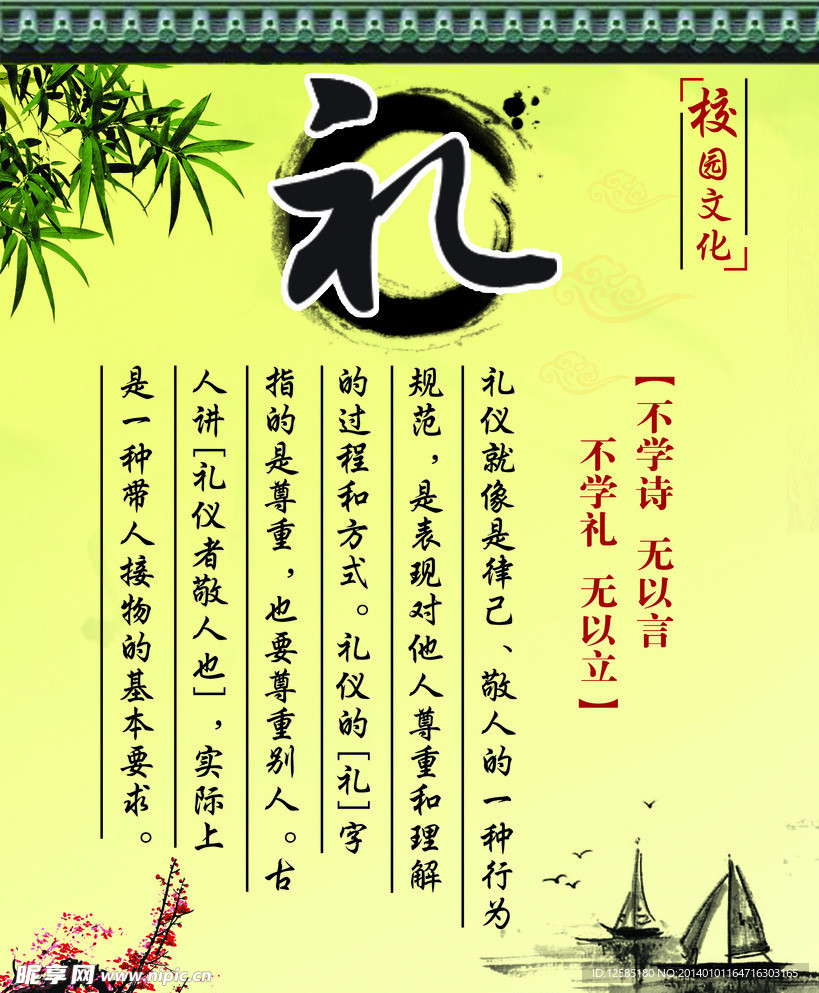 校园文化
礼
【不学诗 无以言
不学礼 无以立】
礼仪就像是律己、敬人的一种行为
规范，是表现对他人尊重和理解
的过程和方式。礼仪的[礼]字
指的是尊重，也要尊重别人。古
人讲[礼仪者敬人也]，实际上
是一种带人接物的基本要求。
昵享网 www.nipic.cn
ID:12585180 NO:20140101164716303165